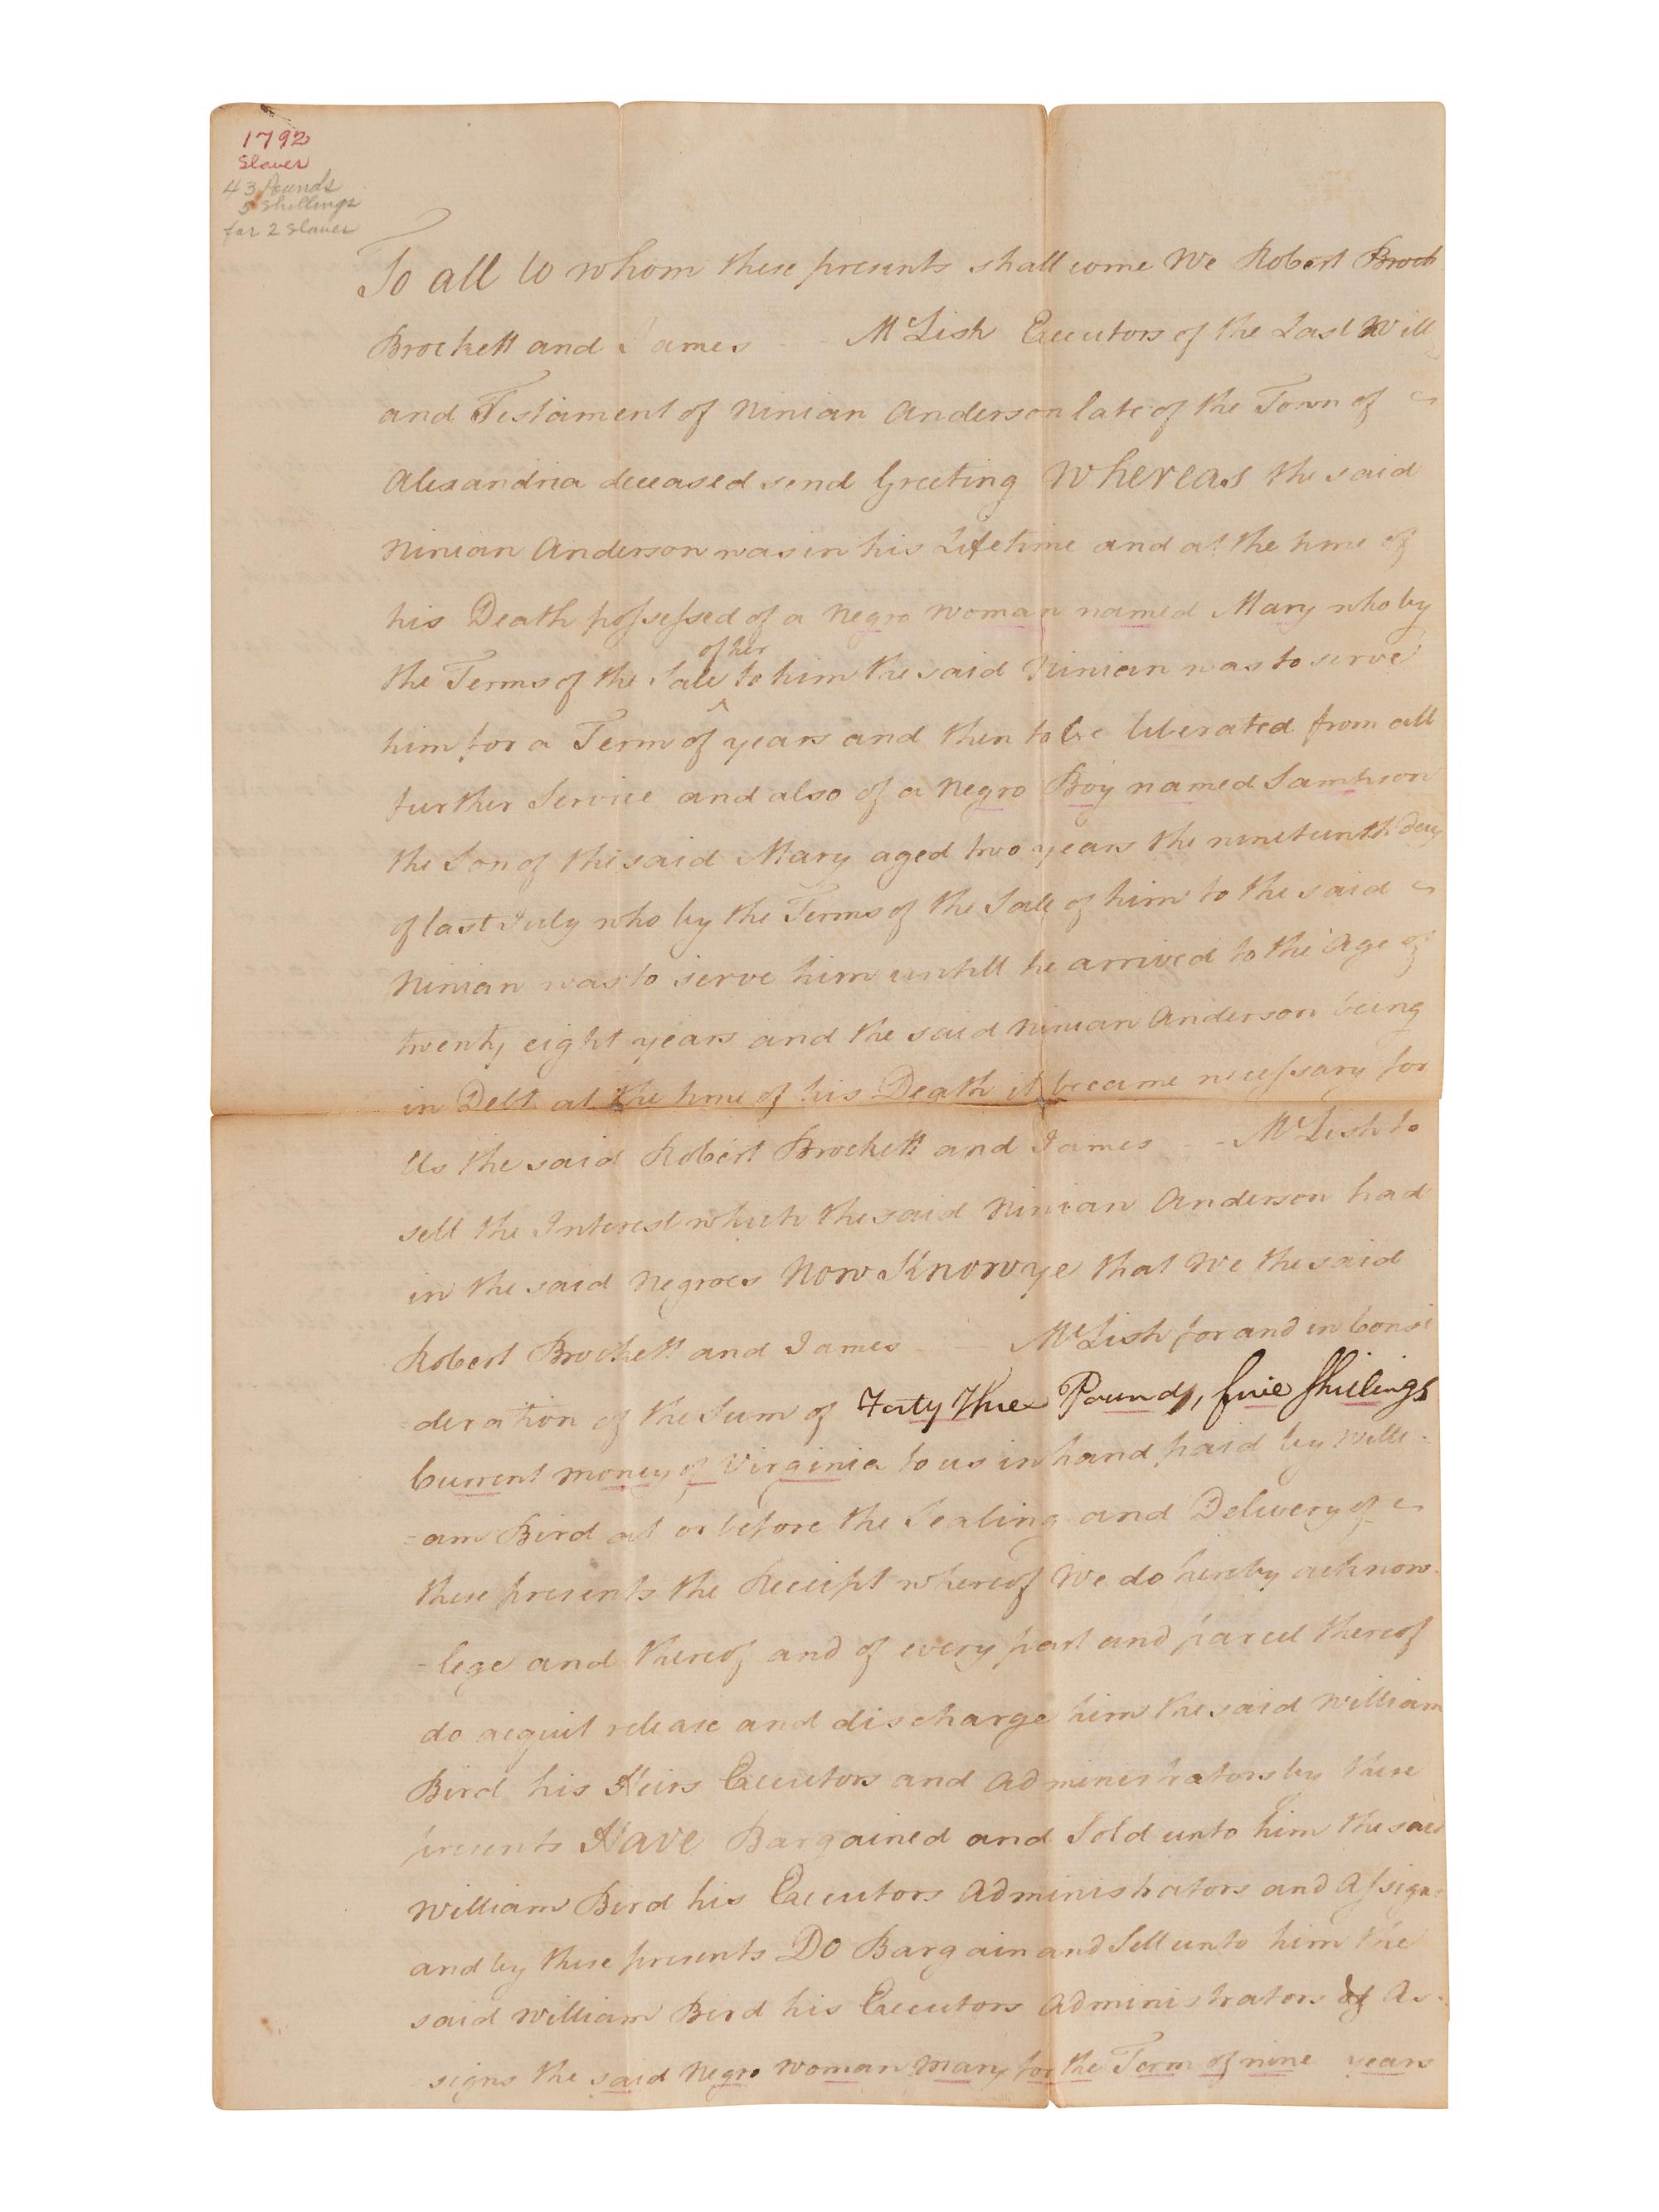 1792
Slaves
43 Pounds
5 Shillings
for 2 Slaves
To all to whom these presents shall come We Robert Brock
Brockett and James - - McLish Executors of the Last Will
and Testament of Ninian Anderson late of the Town of
Alexandria deceased send Greeting Whereas the said
Ninian Anderson was in his Lifetime and at the time of
his Death possessed of a Negro woman named Mary who by
of her
the Terms of the Sale ^ to him the said Ninian was to serve
him for a Term of years and then to be liberated from all
further Service and also of a Negro Boy named Sampson
the Son of the said Mary aged two years the nineteenth Day
of last July who by the Terms of the Sale of him to the said
Ninian was to serve him untill he arrived to the Age of
twenty eight years and the said Ninian Anderson being
in Debt at the time of his Death it became necessary for
Us the said Robert Brockett and James - - McLish to
sell the Interest which the said Ninian Anderson had
in the said Negroes Now Know ye that We the said
Robert Brockett and James - - McLish for and in Consi
deration of the Sum of Forty Three Pounds, five Shillings
Current money of Virginia to us in hand paid by Willi-
-am Bird at or before the Sealing and Delivery of
these presents the Receipt whereof We do hereby acknow-
-lege and thereof and of every part and parcel thereof
do acquit release and discharge him the said William
Bird his Heirs Executors and Administrators by these
presents Have Bargained and Sold unto him the said
William Bird his Executors Administrators and Assigns
and by these presents Do Bargain and Sell unto him the
said William Bird his Executors Administrators & As-
signs the said Negro Woman Mary for the Term of nine years